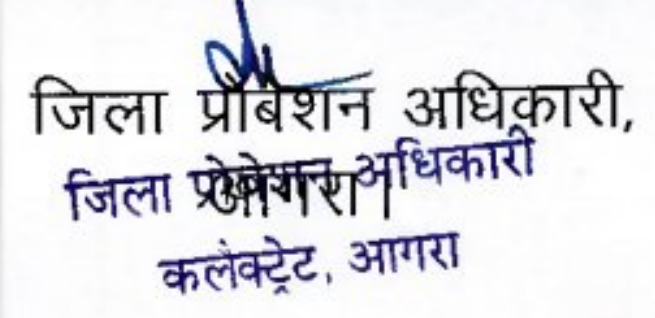 जिला प्रोबेशन अधिकारी,
आगरा।
जिला प्रोबेशन अधिकारी
कलेक्ट्रेट, आगरा